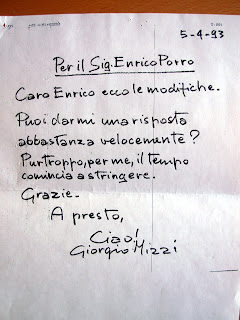 5-4-93
Per il Sig. Enrico Porro
Caro Enrico ecco le modifiche.
Puoi darmi una risposta
abbastanza velocemente?
Purtroppo, per me, il tempo
comincia a stringere.
Grazie.
A presto,
Ciao!
Giorgio Mizzi